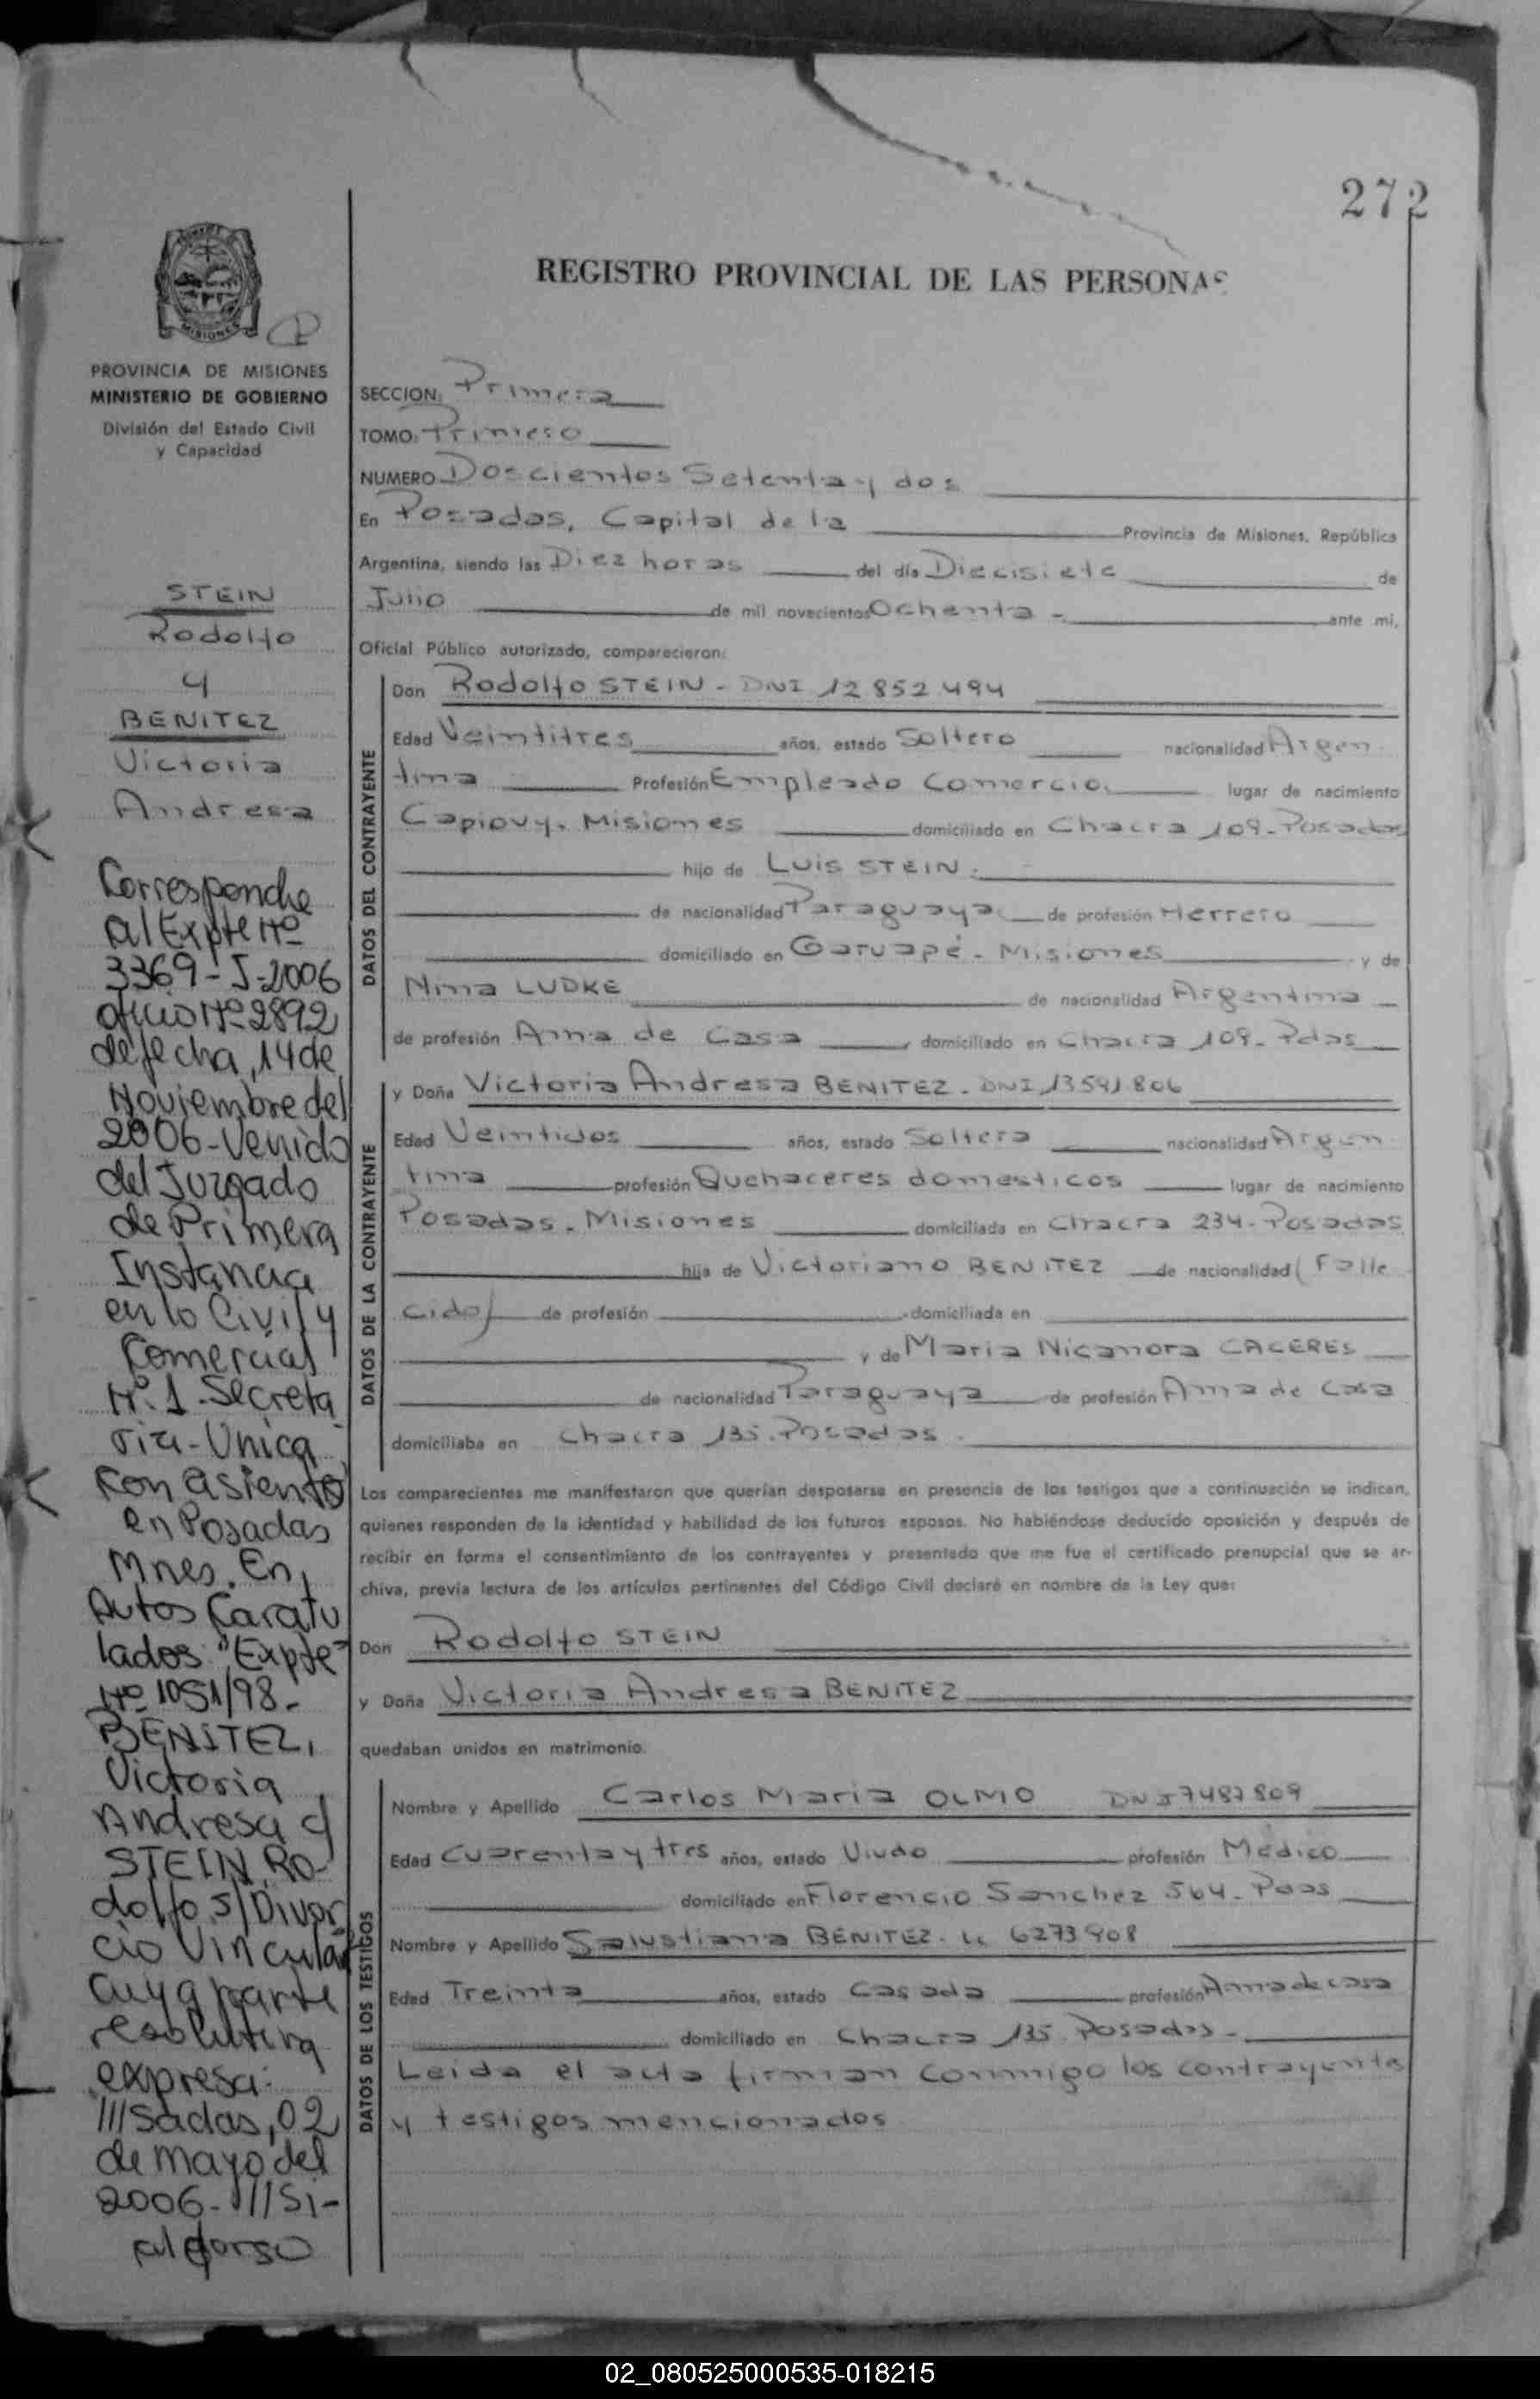 272
REGISTRO PROVINCIAL DE LAS PERSONAS
MISIONES
PROVINCIA DE MISIONES
MINISTERIO DE GOBIERNO
División del Estado Civil
y Capacidad
STEIN
Rodolfo
y
BENITEZ
Victoria
Andresa
Corresponde
al Expte Nº
3369-J-2006
oficio Nº 2892
de fecha, 14 de
Noviembre del
2006-Venido
del Juzgado
de Primera
Instancia
en lo Civil y
Comercial
Nº 1-Secreta
ria-Unica
con asiento
en Posadas
Mnes. En
Autos Caratu
lados: "Expte
Nº 1051/98-
BENITEZ,
Victoria
Andresa c/
STEIN, Ro-
dolfo S/Divor
cio Vincular
cuya parte
resolutiva
expresa:
///sadas, 02
de mayo del
2006-///Si-
al dorso
SECCION: Primera
TOMO: Primero
NUMERO Doscientos Setenta y dos
En Posadas, Capital de la Provincia de Misiones, República
Argentina, siendo las Diez horas del día Diecisiete de
Julio de mil novecientos Ochenta - ante mi,
Oficial Público autorizado, comparecieron:
DATOS DEL CONTRAYENTE
Don Rodolfo STEIN - DNI 12852494
Edad Veintitres años, estado Soltero nacionalidad Argen-
tina Profesión Empleado Comercio. lugar de nacimiento
Capiovy. Misiones domiciliado en Chacra 109-Posadas
hijo de LUIS STEIN.
de nacionalidad Paraguaya de profesión Herrero
domiciliado en Garuapé - Misiones y de
Nina LUDKE de nacionalidad Argentina
de profesión Ama de Casa, domiciliado en Chacra 109- Pdas
DATOS DE LA CONTRAYENTE
y Doña Victoria Andresa BENITEZ - DNI 13541806
Edad Veintidos años, estado Soltera nacionalidad Argen-
tina profesión Quehaceres domesticos lugar de nacimiento
Posadas. Misiones domiciliada en Chacra 234-Posadas
hija de Victoriano BENITEZ de nacionalidad (Falle-
cido) de profesión domiciliada en
y de Maria Nicanora CACERES
de nacionalidad Paraguaya de profesión Ama de Casa
domiciliaba en Chacra 135. Posadas.
Los comparecientes me manifestaron que querían desposarse en presencia de los testigos que a continuación se indican,
quienes responden de la identidad y habilidad de los futuros esposos. No habiéndose deducido oposición y después de
recibir en forma el consentimiento de los contrayentes y presentado que me fue el certificado prenupcial que se ar-
chiva, previa lectura de los artículos pertinentes del Código Civil declaré en nombre de la Ley que:
Don Rodolfo STEIN
y Doña Victoria Andresa BENITEZ
quedaban unidos en matrimonio.
DATOS DE LOS TESTIGOS
Nombre y Apellido Carlos Maria OLMO DNI 7487809
Edad Cuarenta y tres años, estado Viudo profesión Médico
domiciliado en Florencio Sanchez 564- Pdas
Nombre y Apellido Salustiana BENITEZ. Lc 6273908
Edad Treinta años, estado Casada profesión Ama de casa
domiciliado en Chacra 135. Posadas-
Leida el acta firman conmigo los contrayentes
y testigos mencionados
02_080525000535-018215